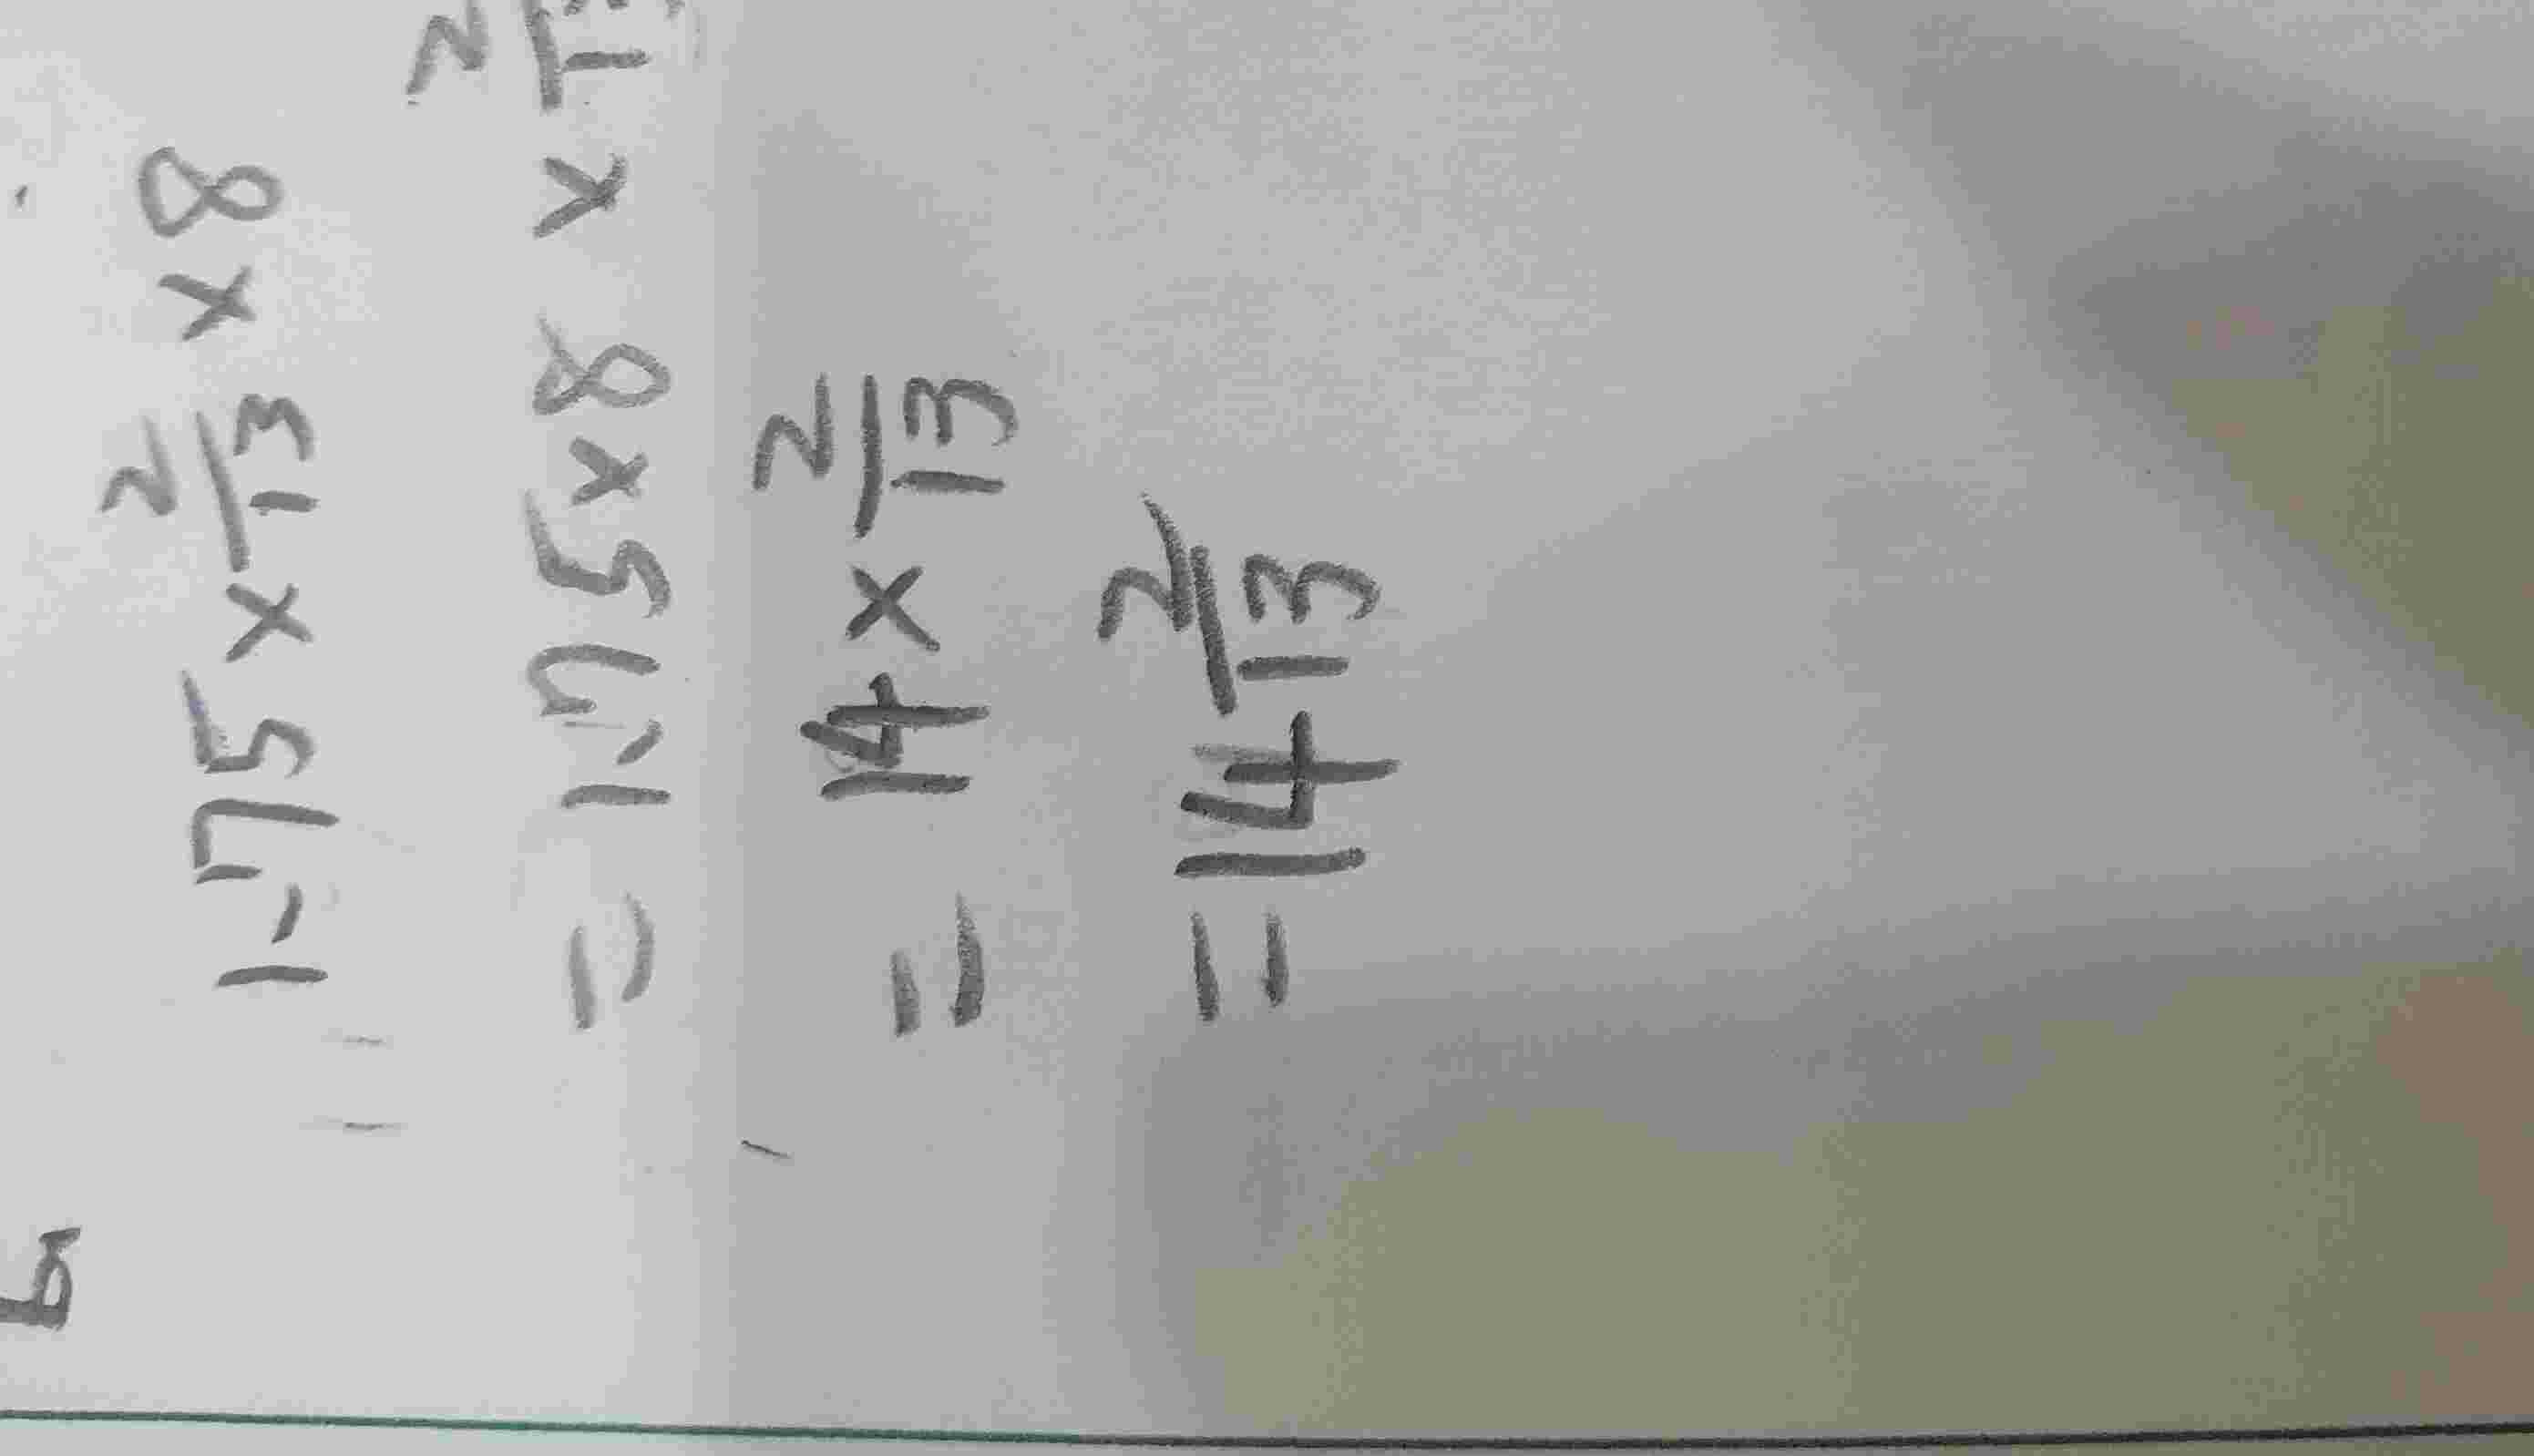 1.75 × 2/13 × 8
= 1.75 × 8 × 2/13
= 14 × 2/13
= 14 2/13